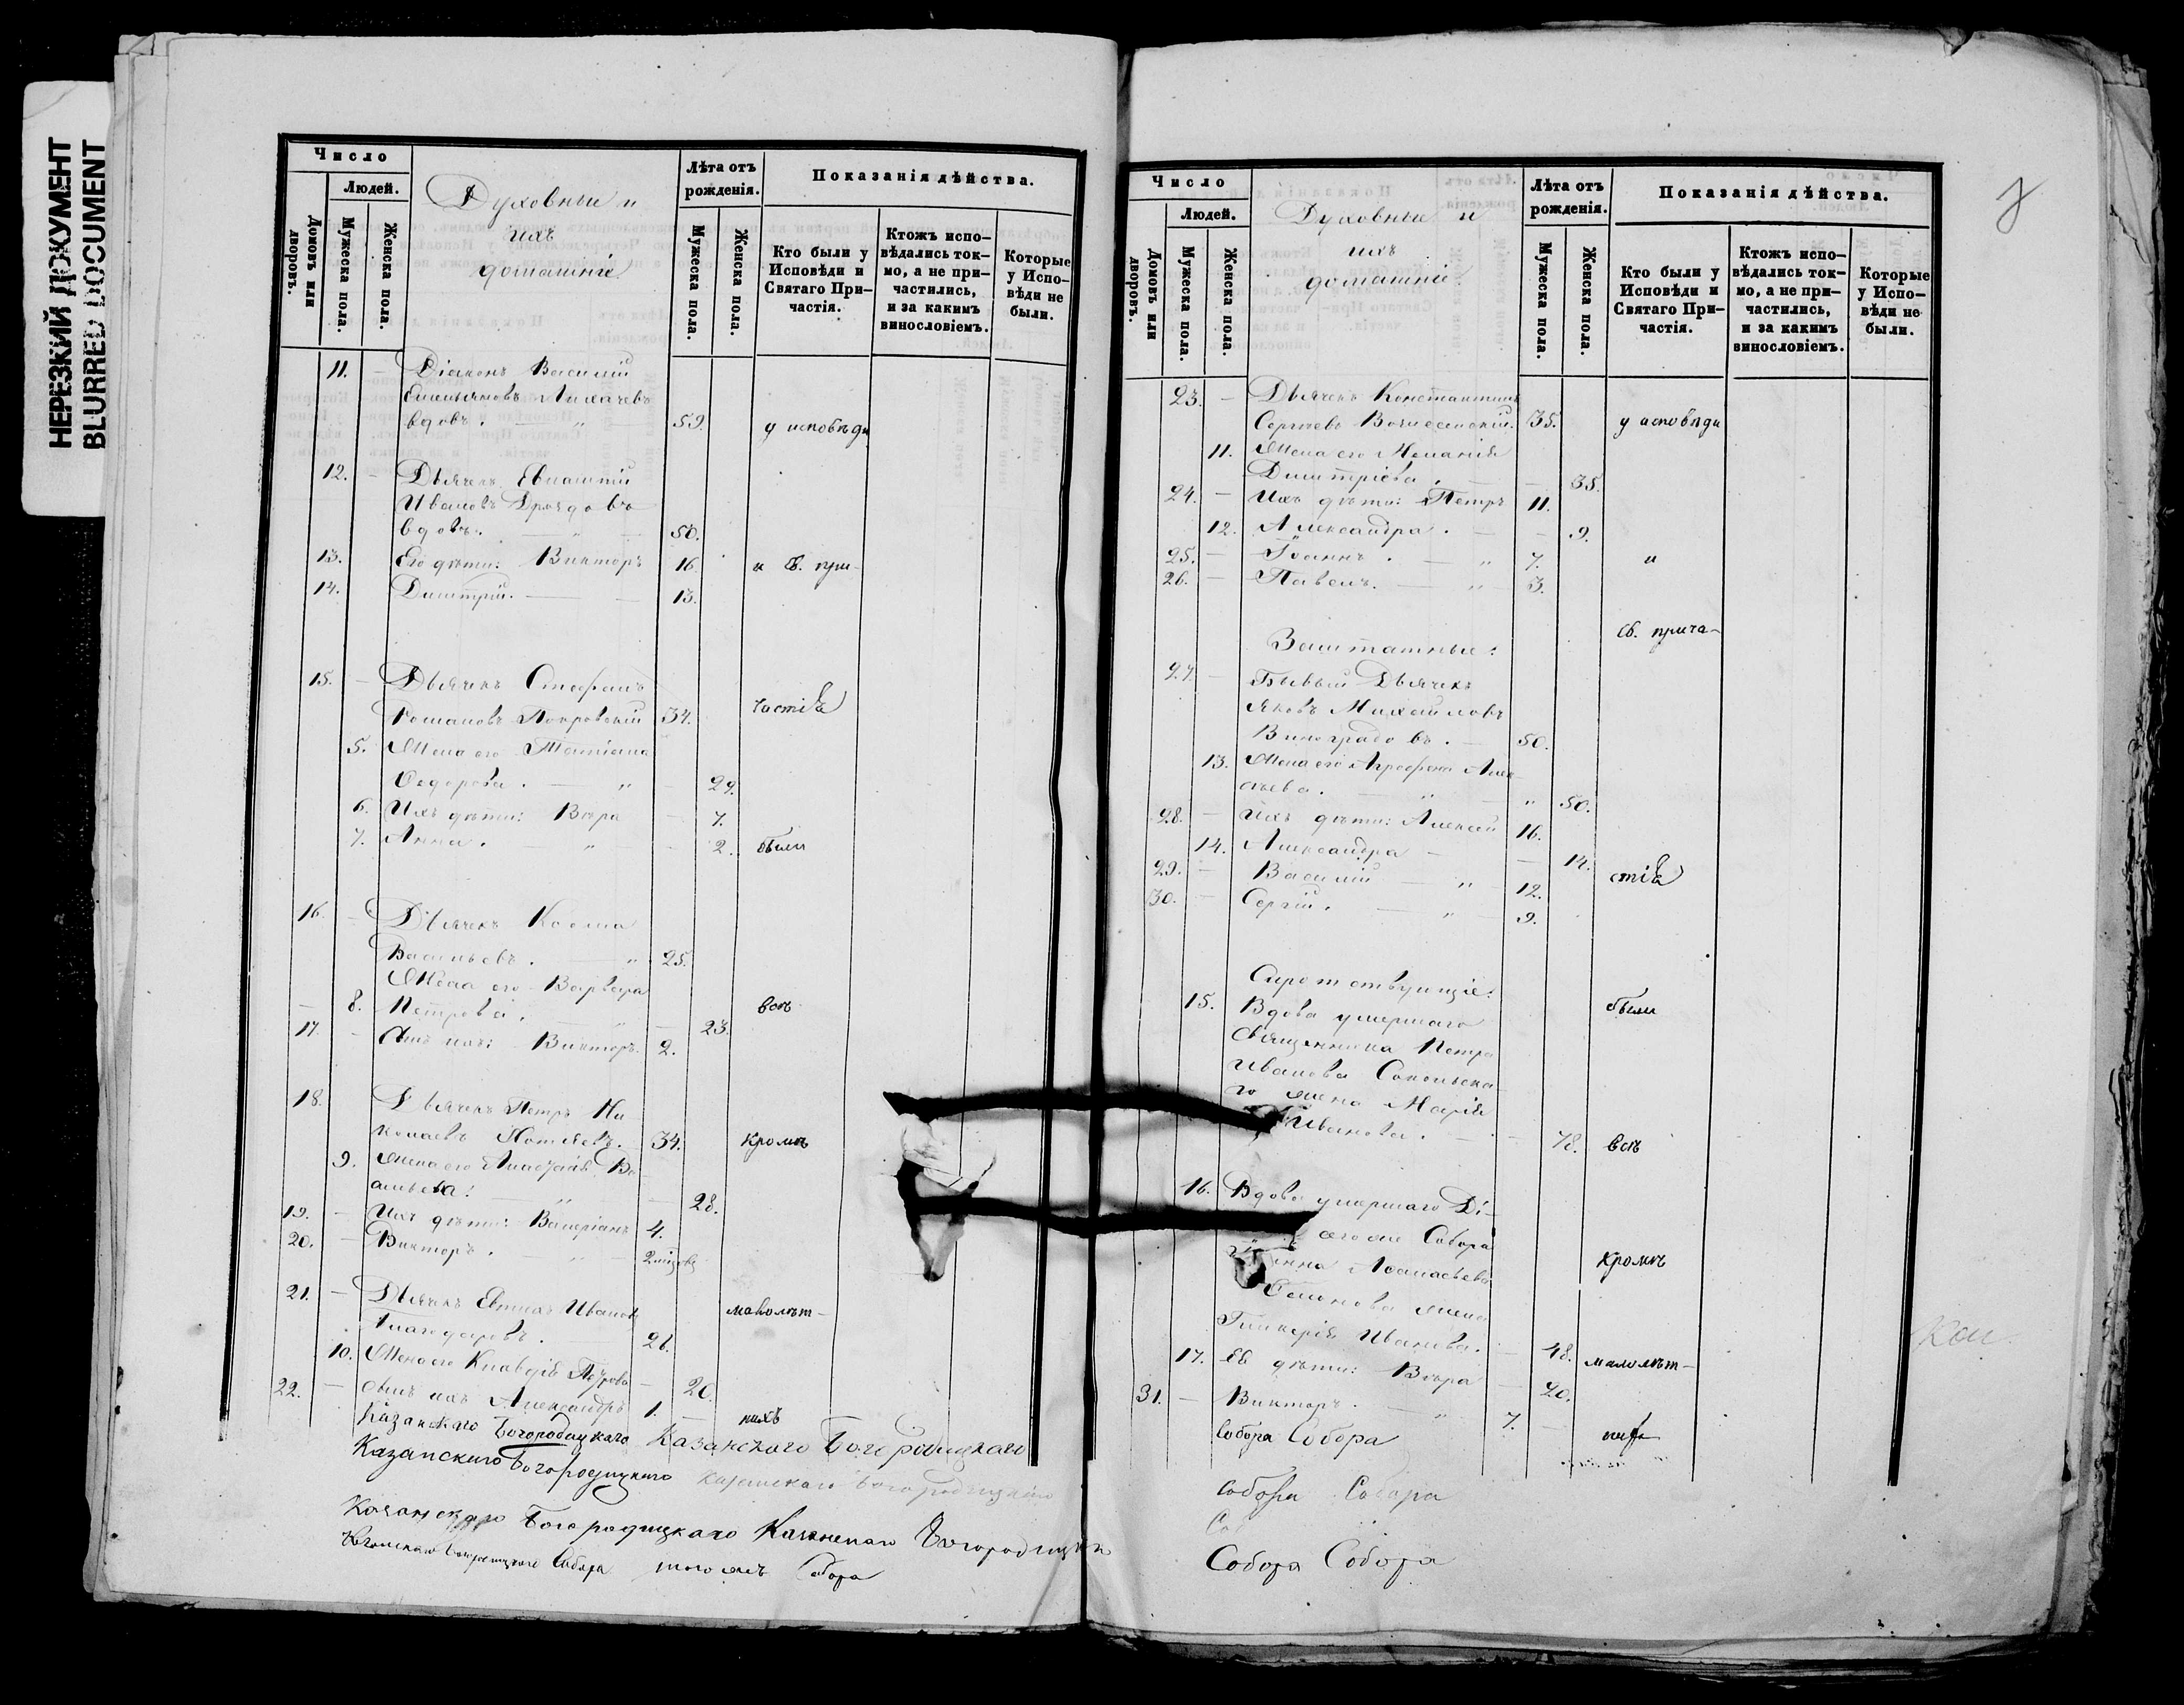 НЕРЕЗКИЙ ДОКУМЕНТ
BLURRED DOCUMENT
Число
Людей.
Домовъ или дворовъ.
Мужеска пола.
Женска пола.
Духовные и
ихъ
домашніе
Лѣта отъ рожденія.
Мужеска пола.
Женска пола.
Показанія дѣйства.
Кто были у Исповѣди и Святаго При-
частія.
Ктожъ испо-
вѣдались ток-
мо, а не при-
частились,
и за какимъ
винословіемъ.
Которые
у Испо-
вѣди не
были.
11. — Діаконъ Василій
Емельяновъ Лихачевъ
вдовъ. 59. у исповѣди
12. — Дьячекъ Евлампій
Ивановъ Дроздовъ
вдовъ. 50.
13. Его дѣти: Викторъ 16. и Св. при-
14. Димитрій. 13.
15. — Дьячекъ Стефанъ
Романовъ Покровскій 34. частія
5. Жена его Татіана
Ѳедорова. 29.
6. Ихъ дѣти: Вѣра 7.
7. Анна. 2. были
16. — Дьячекъ Косма
Васильевъ. 25.
Жена его Варвара
— 8. Петрова. 23. всѣ
17. — Сынъ ихъ: Викторъ. 2.
18. Дьячекъ Петръ Ни
колаевъ 34. кромѣ
9. Жена его Ва
сильева. 28.
19. — Ихъ дѣти: Валеріанъ 4.
20. — Викторъ. 2
21. — Дьячекъ Ивановъ
26. малолѣт-
10. Жена его Клавдія Петрова 20.
22. — Сынъ ихъ Александръ 1. нихъ
Казанскаго Богородицкаго Казанского Богородицкаго
Казанскаго Богородицкаго Казанскаго Богородицкаго
Казанскаго Богородицкаго Казанскаго Богородицка
Казанскаго Богородицкаго Собора Собора
Число
Людей.
Домовъ или дворовъ.
Мужеска пола.
Женска пола.
Духовные и
ихъ
домашніе
Лѣта отъ рожденія.
Мужеска пола.
Женска пола.
Показанія дѣйства.
Кто были у
Исповѣди и
Святаго При-
частія.
Ктожъ испо-
вѣдались ток-
мо, а не при-
частились,
и за какимъ
винословіемъ.
Которые
у Испо-
вѣди не
были.
23. — Дьячекъ Константинъ
Сергѣевъ 35. у исповѣди
11. Жена его Меланія
Димитріева. 35.
24. — Ихъ дѣти: Петръ 11.
12. Александра. 9.
25. — Іоаннъ. 7. и
26. — Павелъ. 3.
Св. прича-
Заштатные:
27. — Бывый Дьячекъ
Яковъ Михайловъ
Виноградовъ. 50.
13. Жена его Алек
сѣева. 50.
28. — Ихъ дѣти: Алексѣй 16.
14. Александра 14. стія
29. — Василій 12.
30. — Сергій. 9.
Сиротствующіе:
15. Вдова умершаго были
Священника Петра
Иванова Сокольска-
го жена Марія
Иванова. 78. всѣ
16. Вдова умершаго Ді-
Собора
Аѳанасьева кромѣ
Семенова жена
Гликерія Иванова. 48. малолѣт-
17. Ея дѣти: Вѣра 20.
31. — Викторъ. 7.
Собора Собора
Собора Собора
Соб
Собора Собора